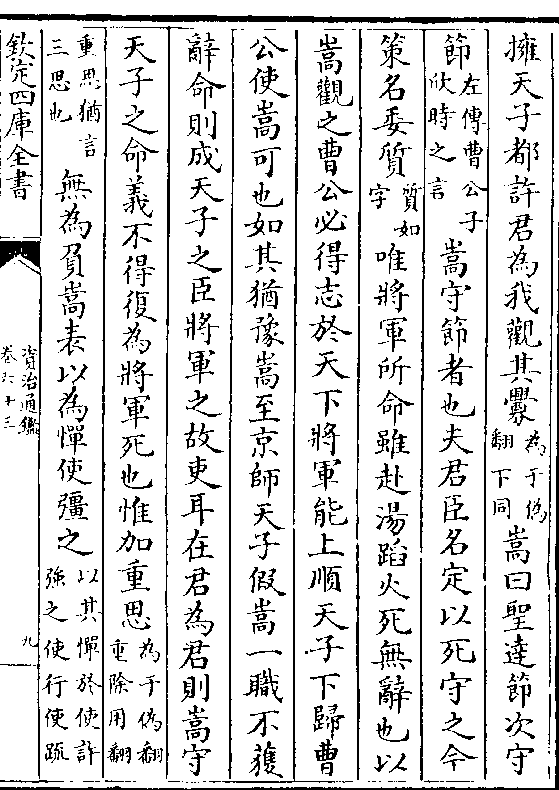 擁天子都許君為我觀其釁為于偽翻下同嵩曰聖達節次守
節左傳曹公子欣時之言嵩守節者也夫君臣名定以死守之今
策名委質質如字唯將軍所命雖赴湯蹈火死無辭也以
嵩觀之曹公必得志於天下將軍能上順天子下歸曹
公使嵩可也如其猶豫嵩至京師天子假嵩一職不獲
辭命則成天子之臣將軍之故吏耳在君為君則嵩守
天子之命義不得復為將軍死也惟加重思為于偽翻重除用翻
重思猶言三思也無為負嵩表以為憚使彊之以其憚於使許強之使行使疏
欽定四庫全書
資治通鑑
卷六十三
九